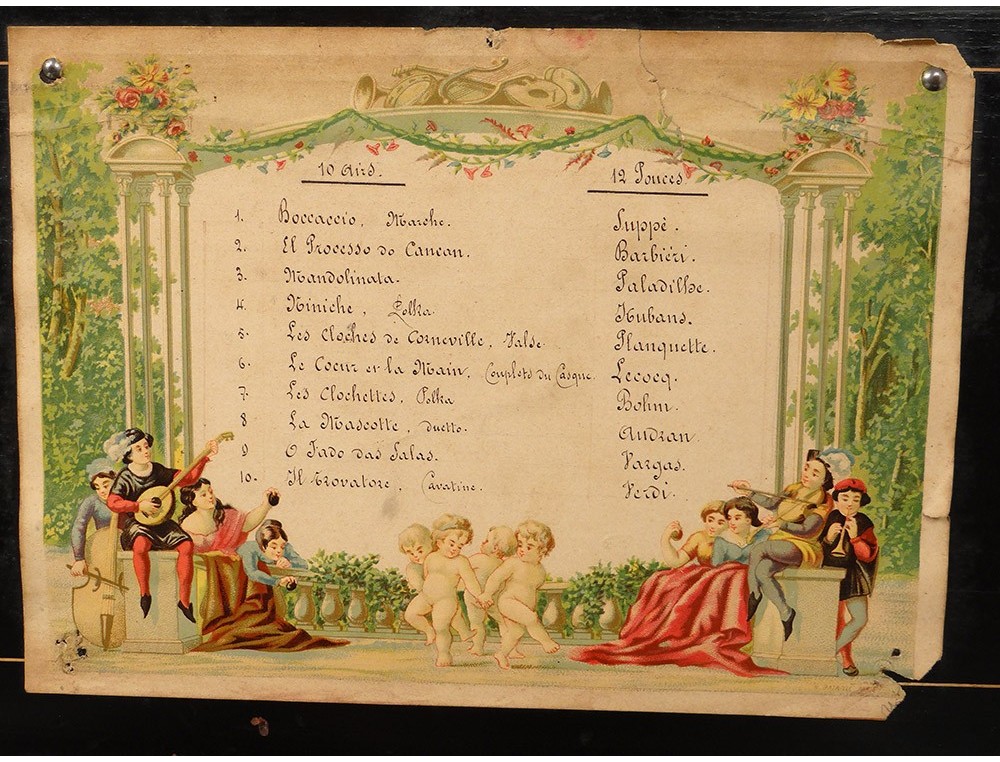 10 Airs. 12 Pouces.
1. Boccaccio, Marche. Suppè.
2. El Processo do Cancan. Barbiéri.
3. Mandolinata. Paladilhe.
4. Niniche, Polka. Hubans.
5. Les Cloches de Corneville, Valse. Planquette.
6. Le Coeur et la Main, Couplets du Casque. Lecocq.
7. Les Clochettes, Polka Bohm.
8 La Mascotte, duetto. Audran
9 O Fado das Salas. Vargas.
10. Il Trovatore, Cavatine. Verdi.